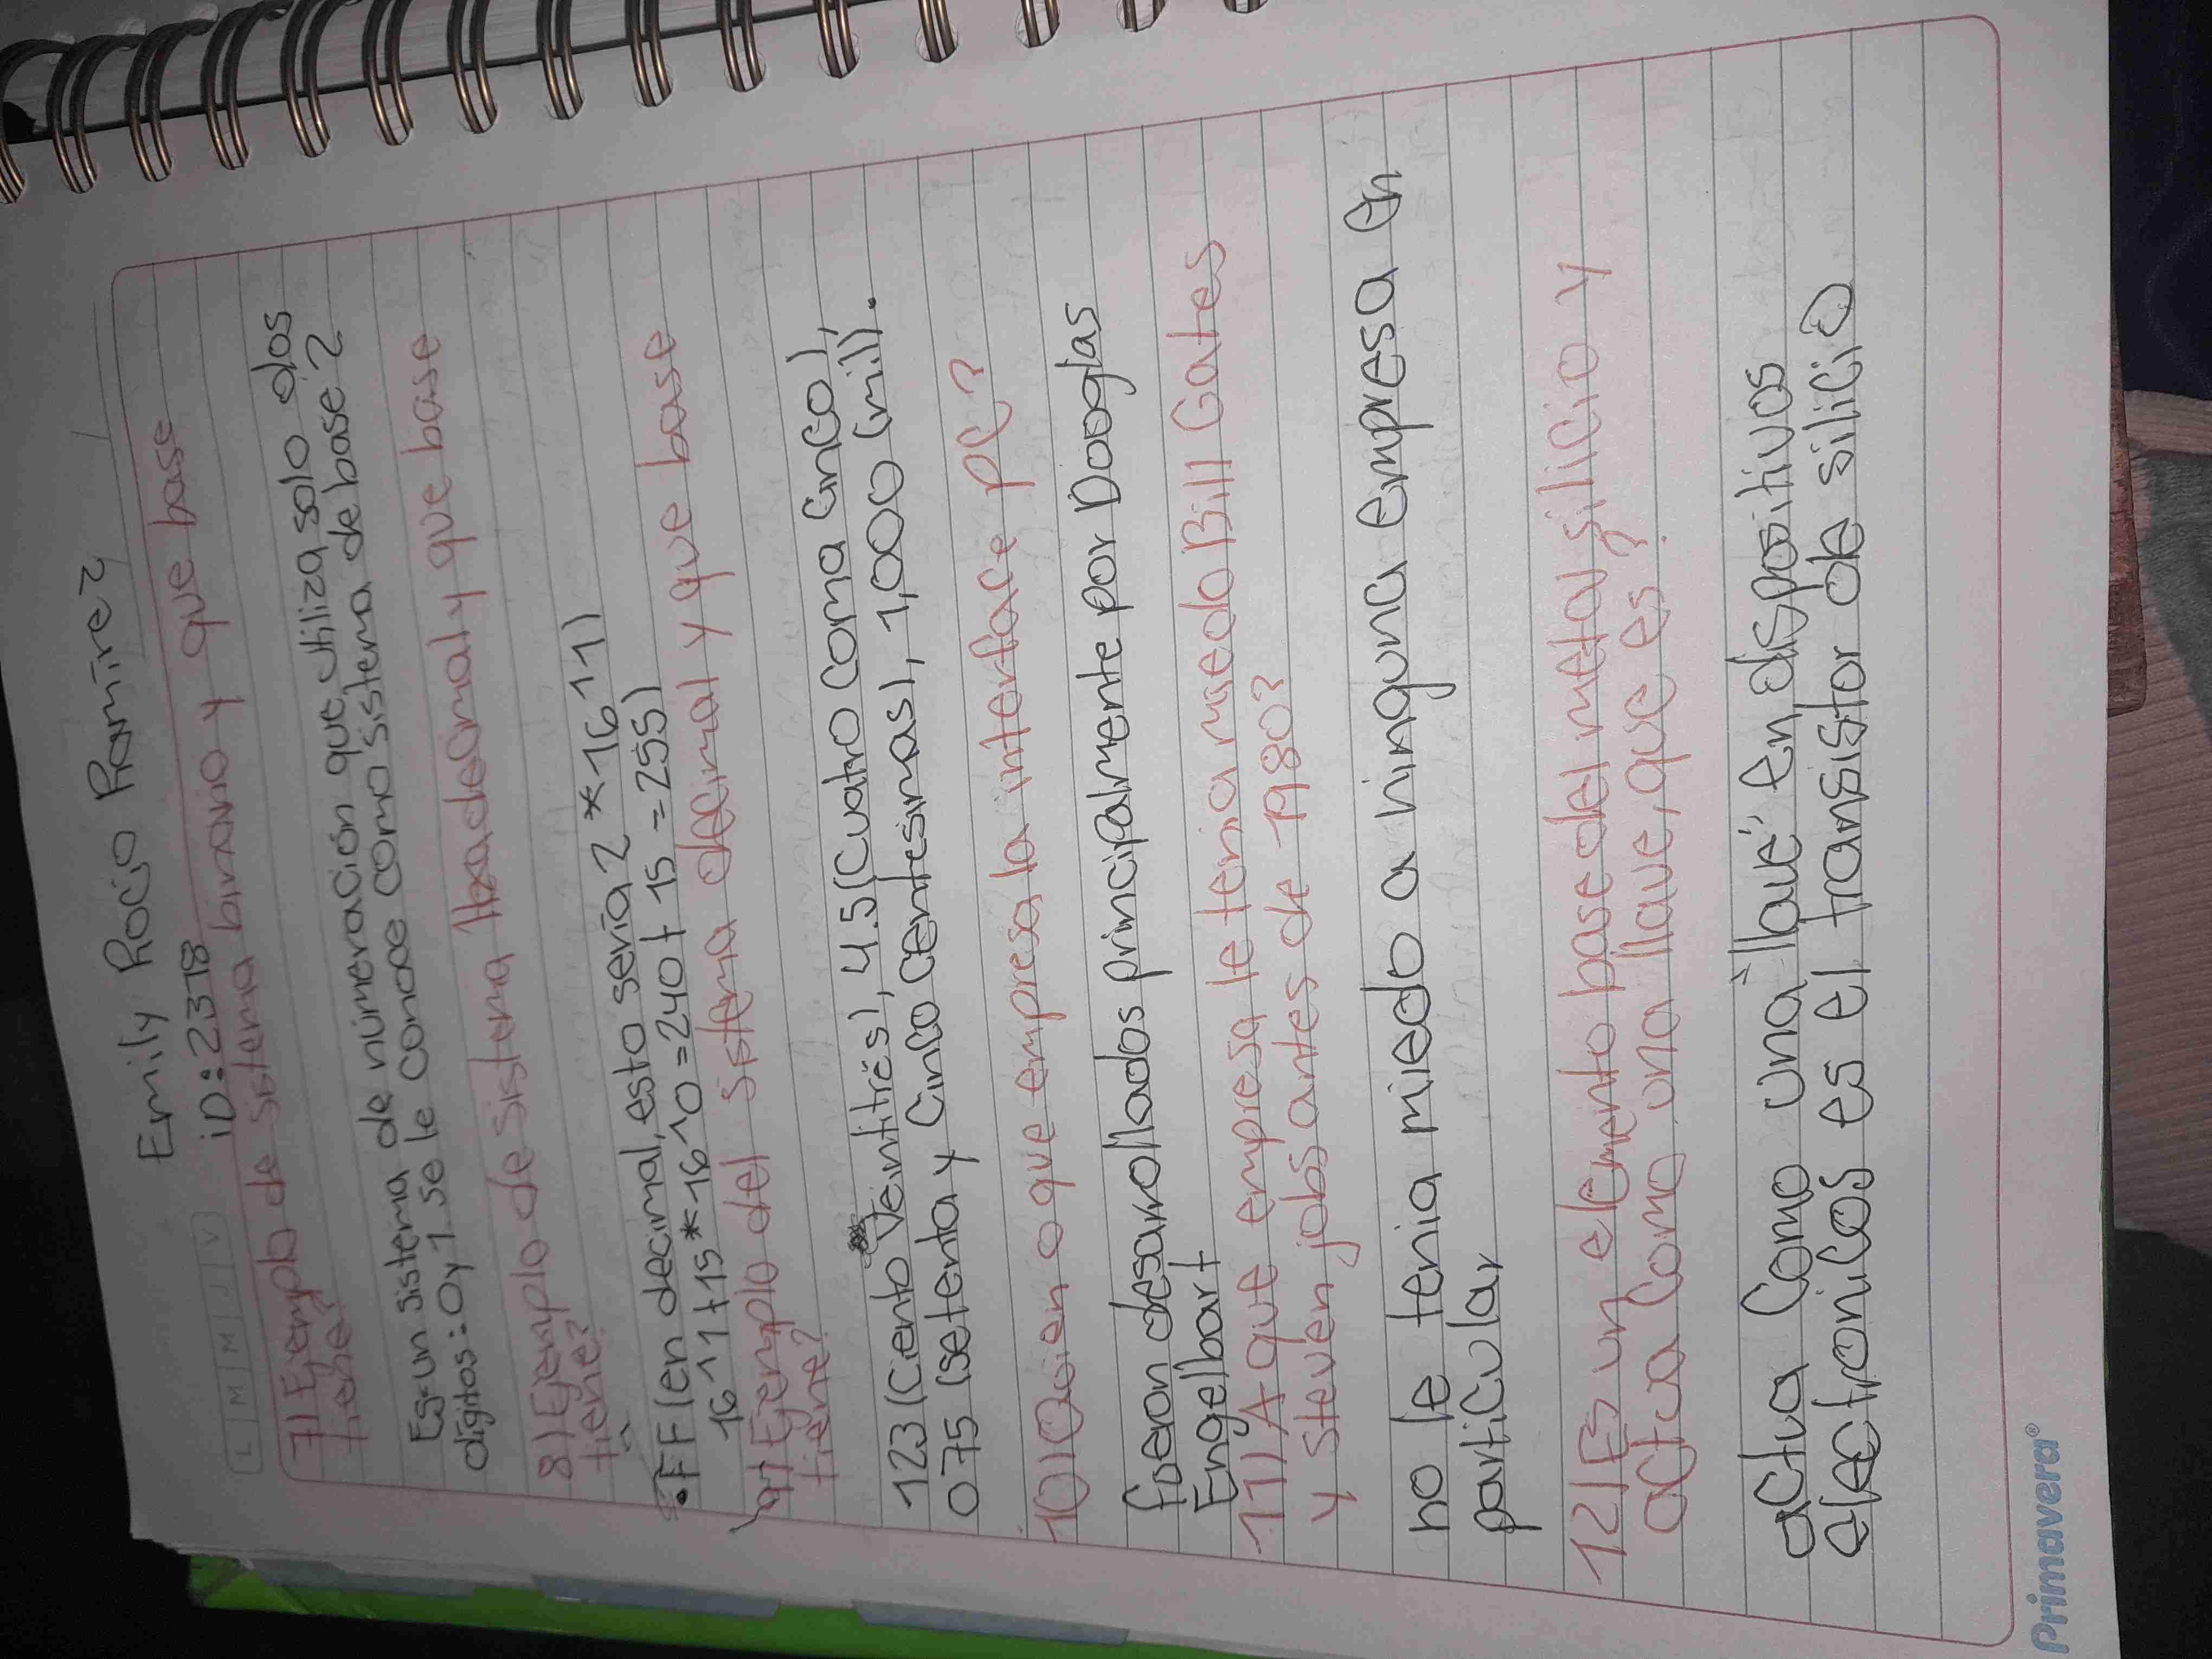 Emily Rocio Ramirez
L M M J V
iD: 2378
7) Ejemplo de sistema binario y que base
tiene?
Es un sistema de númeración que utiliza solo dos
digitos: 0 y 1. se le conoce como sistema de base 2
8) Ejemplo de sistema Hexadecimal y que base
tiene?
• FF (en decimal, esto sería 2 * 16 11)
16 11 + 15 * 16 10 = 240 + 15 = 255)
9) Ejemplo del sistema decimal y que base
tiene?
123 (Ciento Veintitrés), 4.5 (Cuatro coma cinco),
075 (setenta y Cinco Centesimas), 1,000 (mil).
10) Quien o que empresa la interface PC?
fueron desarrollados principalmente por Douglas
Engelbart
11) A que empresa le tenia miedo Bill Gates
y Steven jobs antes de 1980?
no le tenia miedo a ninguna empresa en
particular
12) Es un elemento base del metal silicio y
actua como una llave, que es?
actua como una "llave" en dispositivos
electronicos es el transistor de silicio
Primavera®